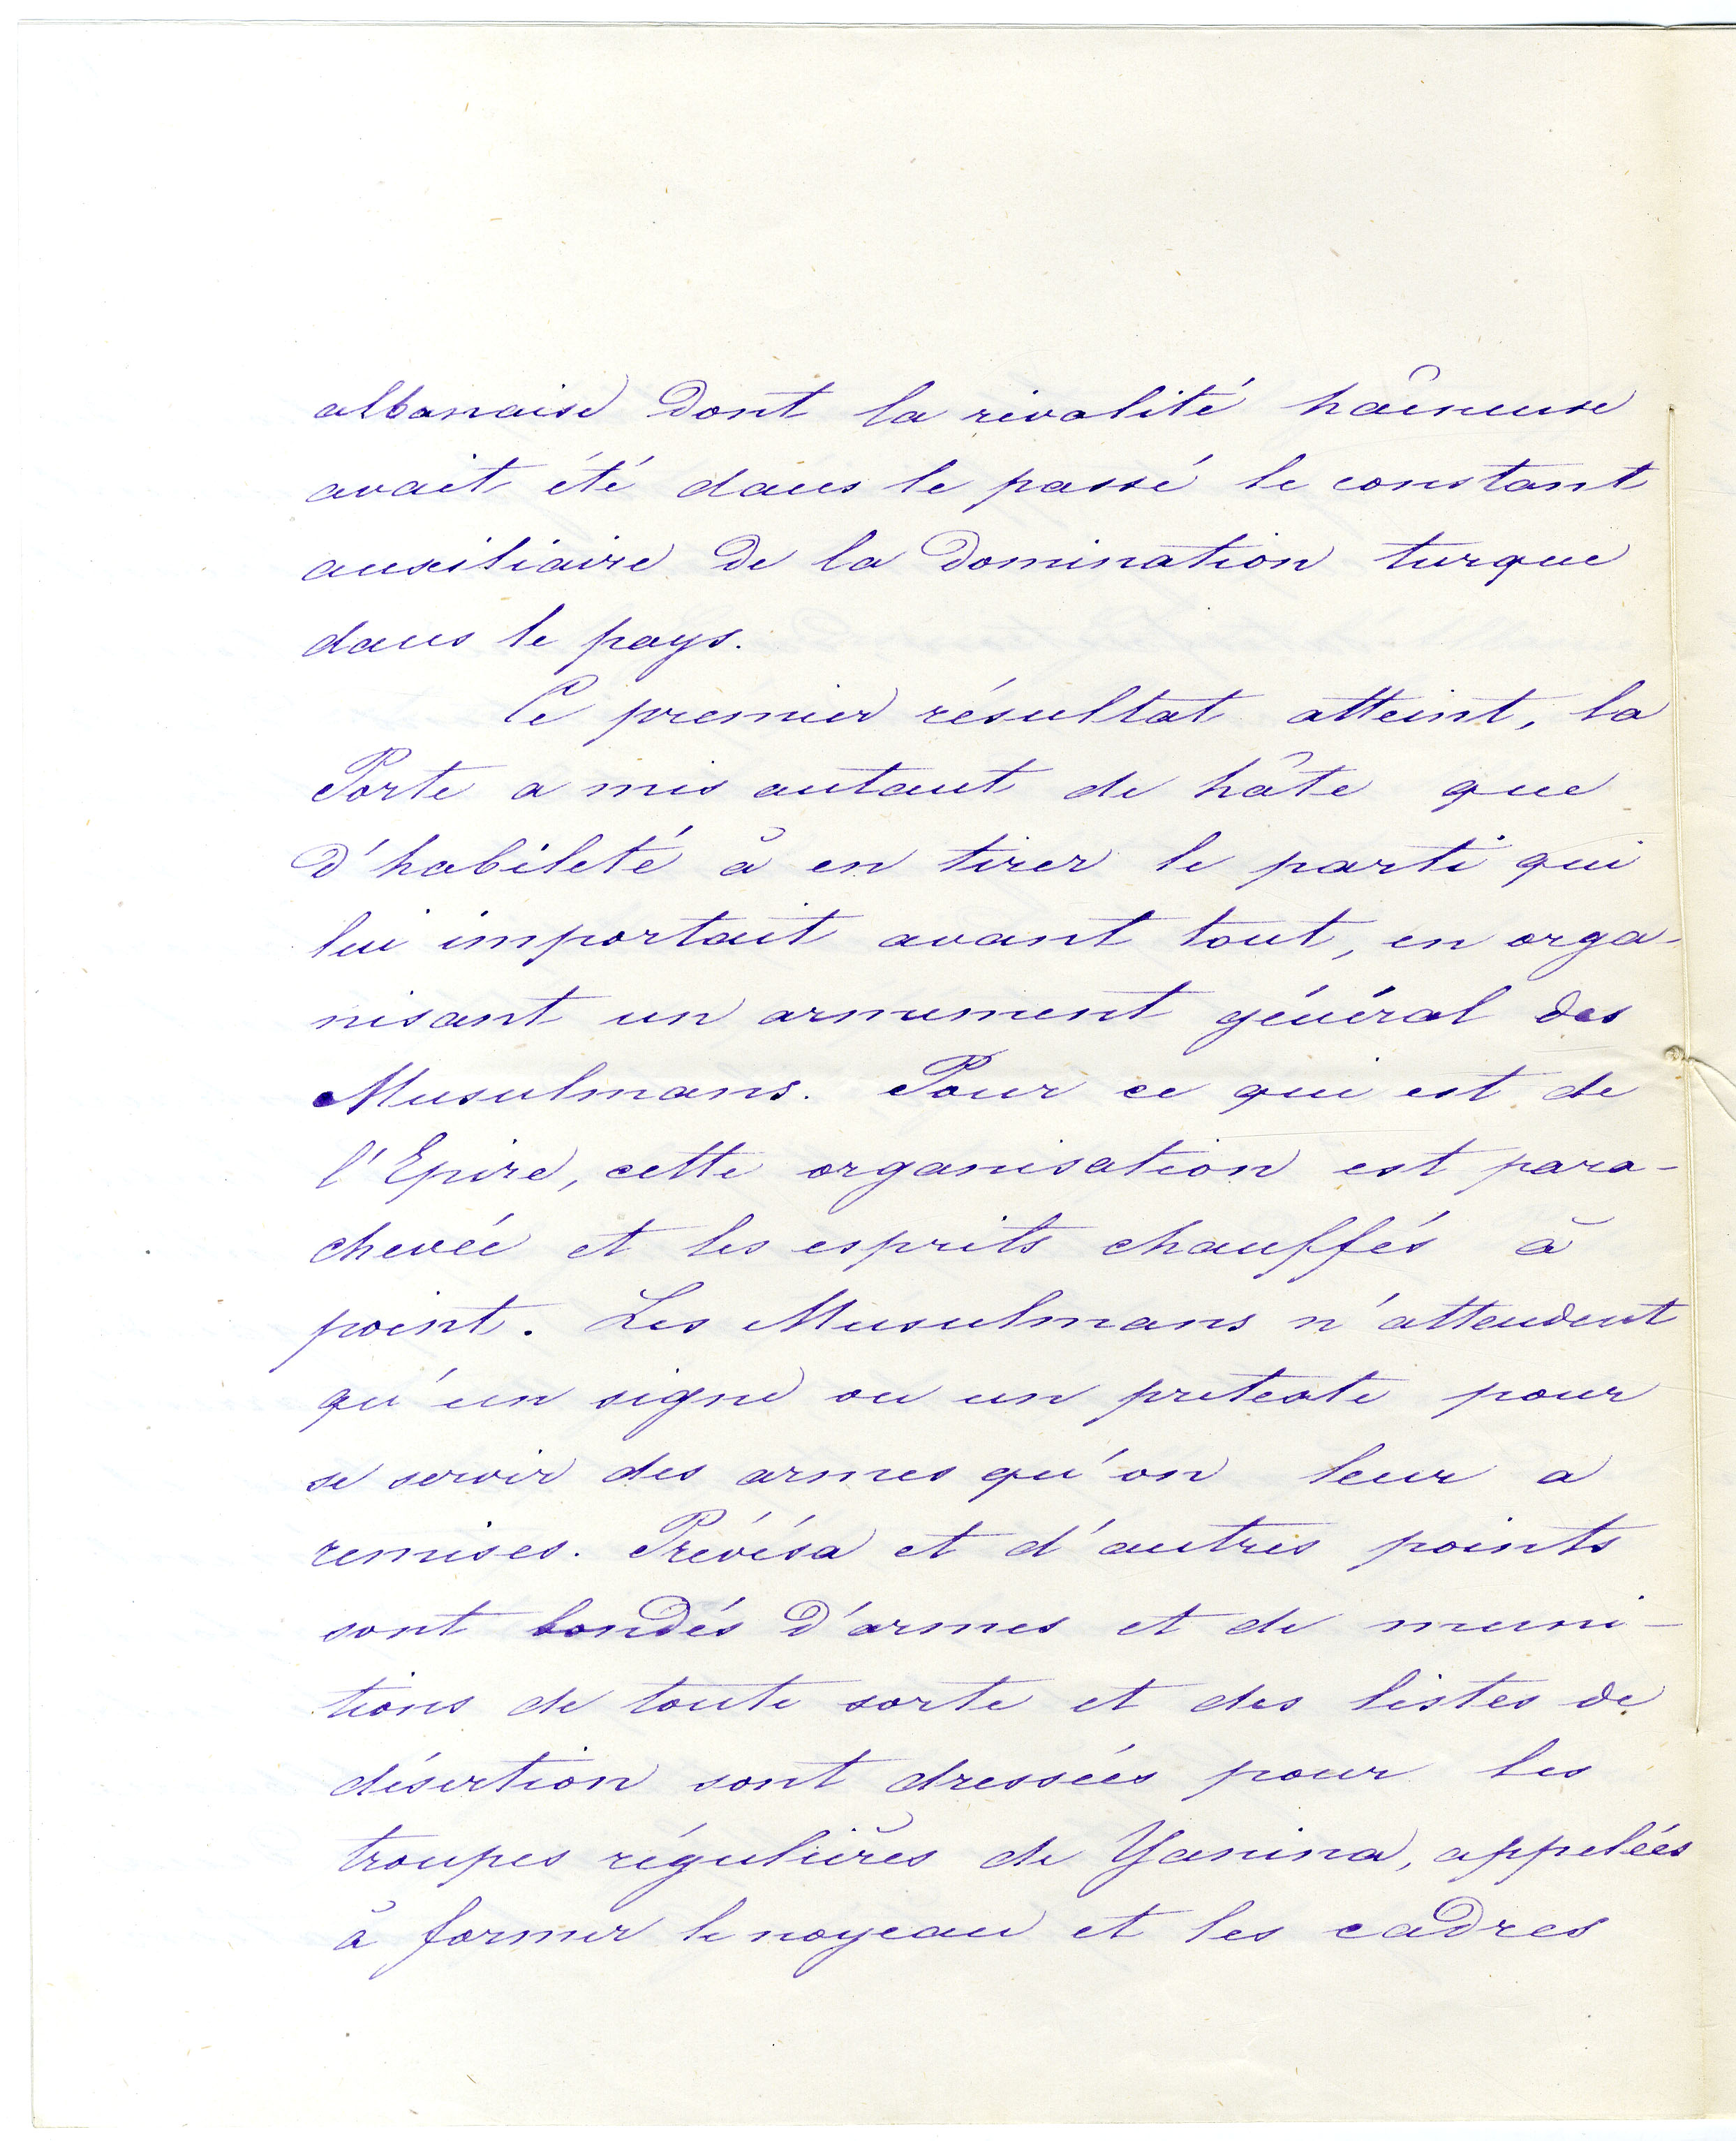 albanaise dont la rivalité hâineuse
avait été dans le passé le constant
auxiliaire de la domination turque
dans le pays.
Ce premier résultat atteint, la
Porte a mis autant de hâte que
d'habileté à en tirer le parti qui
lui importait avant tout, en orga-
nisant un armement général des
Musulmans. Pour ce qui est de
l'Epire, cette organisation est para-
chevée et les esprits chauffés à
point. Les Musulmans n'attendent
qu'un signe ou un pretexte pour
se servir des armes qu'on leur a
remises. Prévésa et d'autres points
sont bondés d'armes et de muni-
tions de toute sorte et des listes de
désertion sont dressées pour les
troupes régulières de Yanina, appelées
à former le noyeau et les cadres